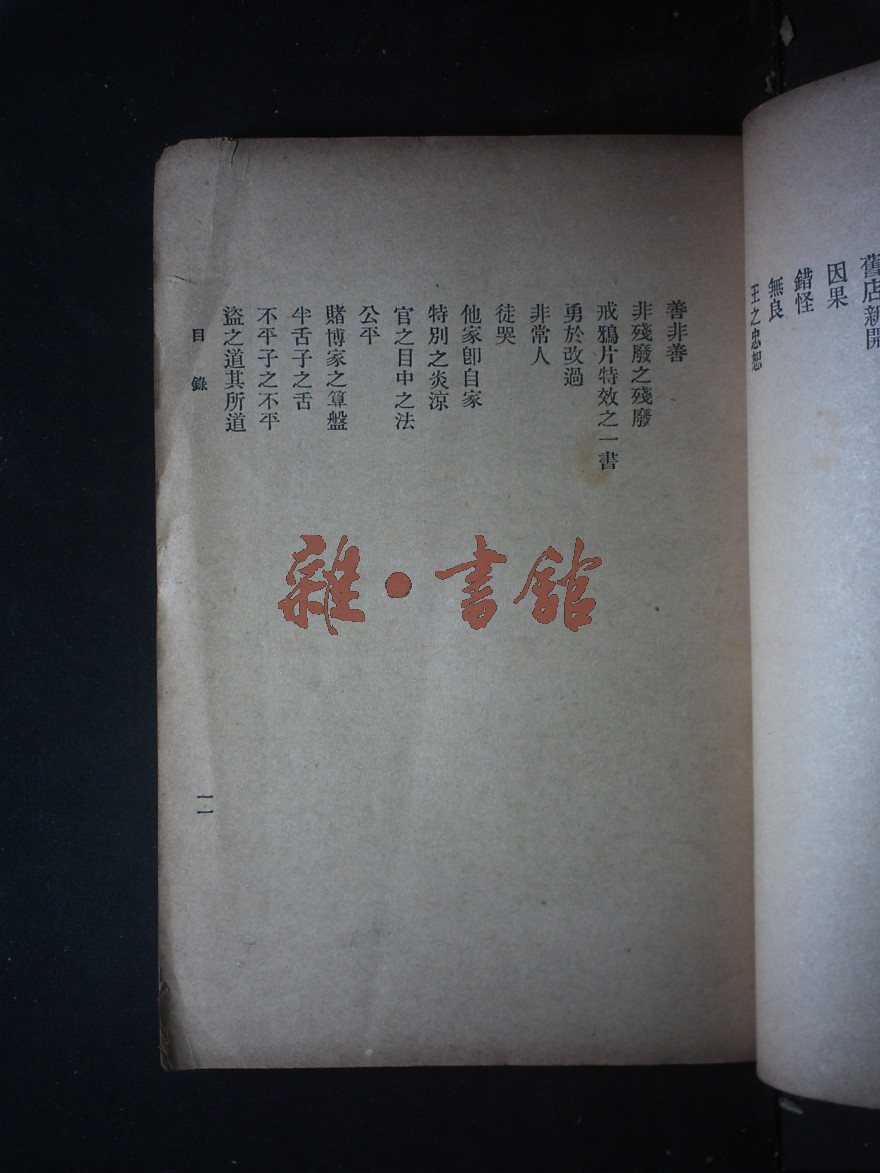 舊店新開
因果
錯怪
無良
王之忠恕
善非善
非殘廢之殘廢
戒鴉片特效之一書
勇於改過
非常人
徒哭
他家卽自家
特別之炎涼
官之目中之法
公平
賭博家之算盤
半舌子之舌
不平子之不平
盜之道其所道
目錄
一一
雜·書館